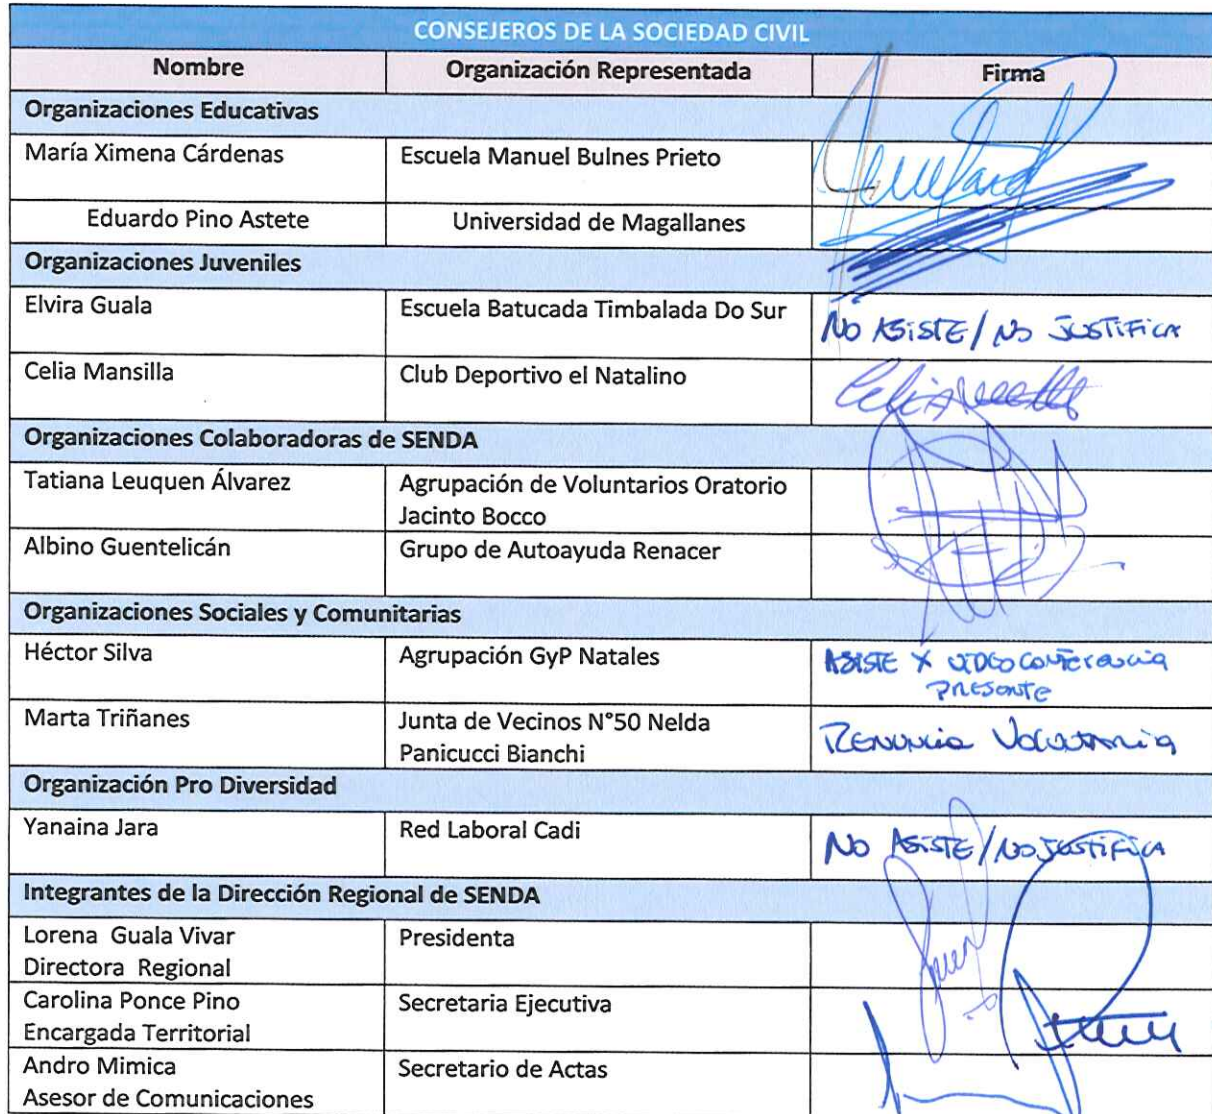 CONSEJEROS DE LA SOCIEDAD CIVIL
Nombre Organización Representada Firma
Organizaciones Educativas
María Ximena Cárdenas Escuela Manuel Bulnes Prieto
Eduardo Pino Astete Universidad de Magallanes
Organizaciones Juveniles
Elvira Guala Escuela Batucada Timbalada Do Sur NO ASISTE / NO JUSTIFICA
Celia Mansilla Club Deportivo el Natalino
Organizaciones Colaboradoras de SENDA
Tatiana Leuquen Álvarez Agrupación de Voluntarios Oratorio
Jacinto Bocco
Albino Guentelicán Grupo de Autoayuda Renacer
Organizaciones Sociales y Comunitarias
Héctor Silva Agrupación GyP Natales ASISTE X VIDEO CONFERENCIA
PRESENTE
Marta Triñanes Junta de Vecinos N°50 Nelda RENUNCIA VOLUNTARIA
Panicucci Bianchi
Organización Pro Diversidad
Yanaina Jara Red Laboral Cadi NO ASISTE / NO JUSTIFICA
Integrantes de la Dirección Regional de SENDA
Lorena Guala Vivar Presidenta
Directora Regional
Carolina Ponce Pino Secretaria Ejecutiva
Encargada Territorial
Andro Mimica Secretario de Actas
Asesor de Comunicaciones